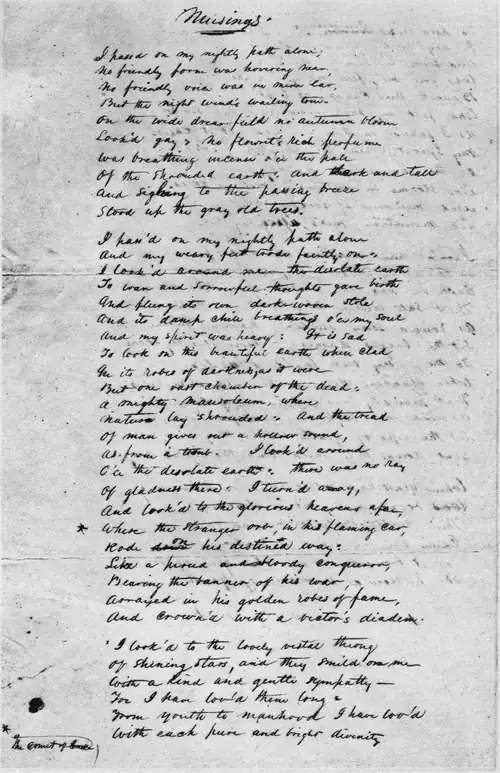 Musings.
I pass'd on my nightly path alone;
No friendly form was hovering near,
No friendly voice was in mine ear,
But the night wind's wailing tone.
On the wide drear field no autumn bloom
Look'd gay; no flowret's rich perfume
Was breathing incense o'er the pale
Of the shrouded earth: and thark and tall
And sighing to the passing breeze
Stood up the gray old trees.
I pass'd on my nightly path alone
And my weary feet trode faintly on:
I look'd around me the desolate earth
To wan and sorrowful thoughts gave birth
And flung its own dark-woven stole
And its damp chill breathings o'er my soul
And my spirit was heavy: It is sad
To look on this beautiful earth when clad
In its robes of darkness, as it were
But one vast chamber of the dead:
A mighty mausoleum, where
Nature lay shrouded: And the tread
Of man gives out a hollow sound,
As from a tomb. I look'd around
O'er the desolate earth: there was no ray
Of gladness there: I turn'd away,
And look'd to the glorious heavens afar,
* Where the stranger orb in his flaming car,
Rode on his destined way:
Like a proud and bloody conqueror,
Bearing the banner of his war,
Arrayed in his golden robes of fame,
And crown'd with a victor's diadem.
I look'd to the lovely vestal throng
Of shining stars, and they smil'd on me
With a kind and gentle sympathy—
For I have lov'd them long:
From youth to manhood I have lov'd
With each pure and bright divinity
* The comet of